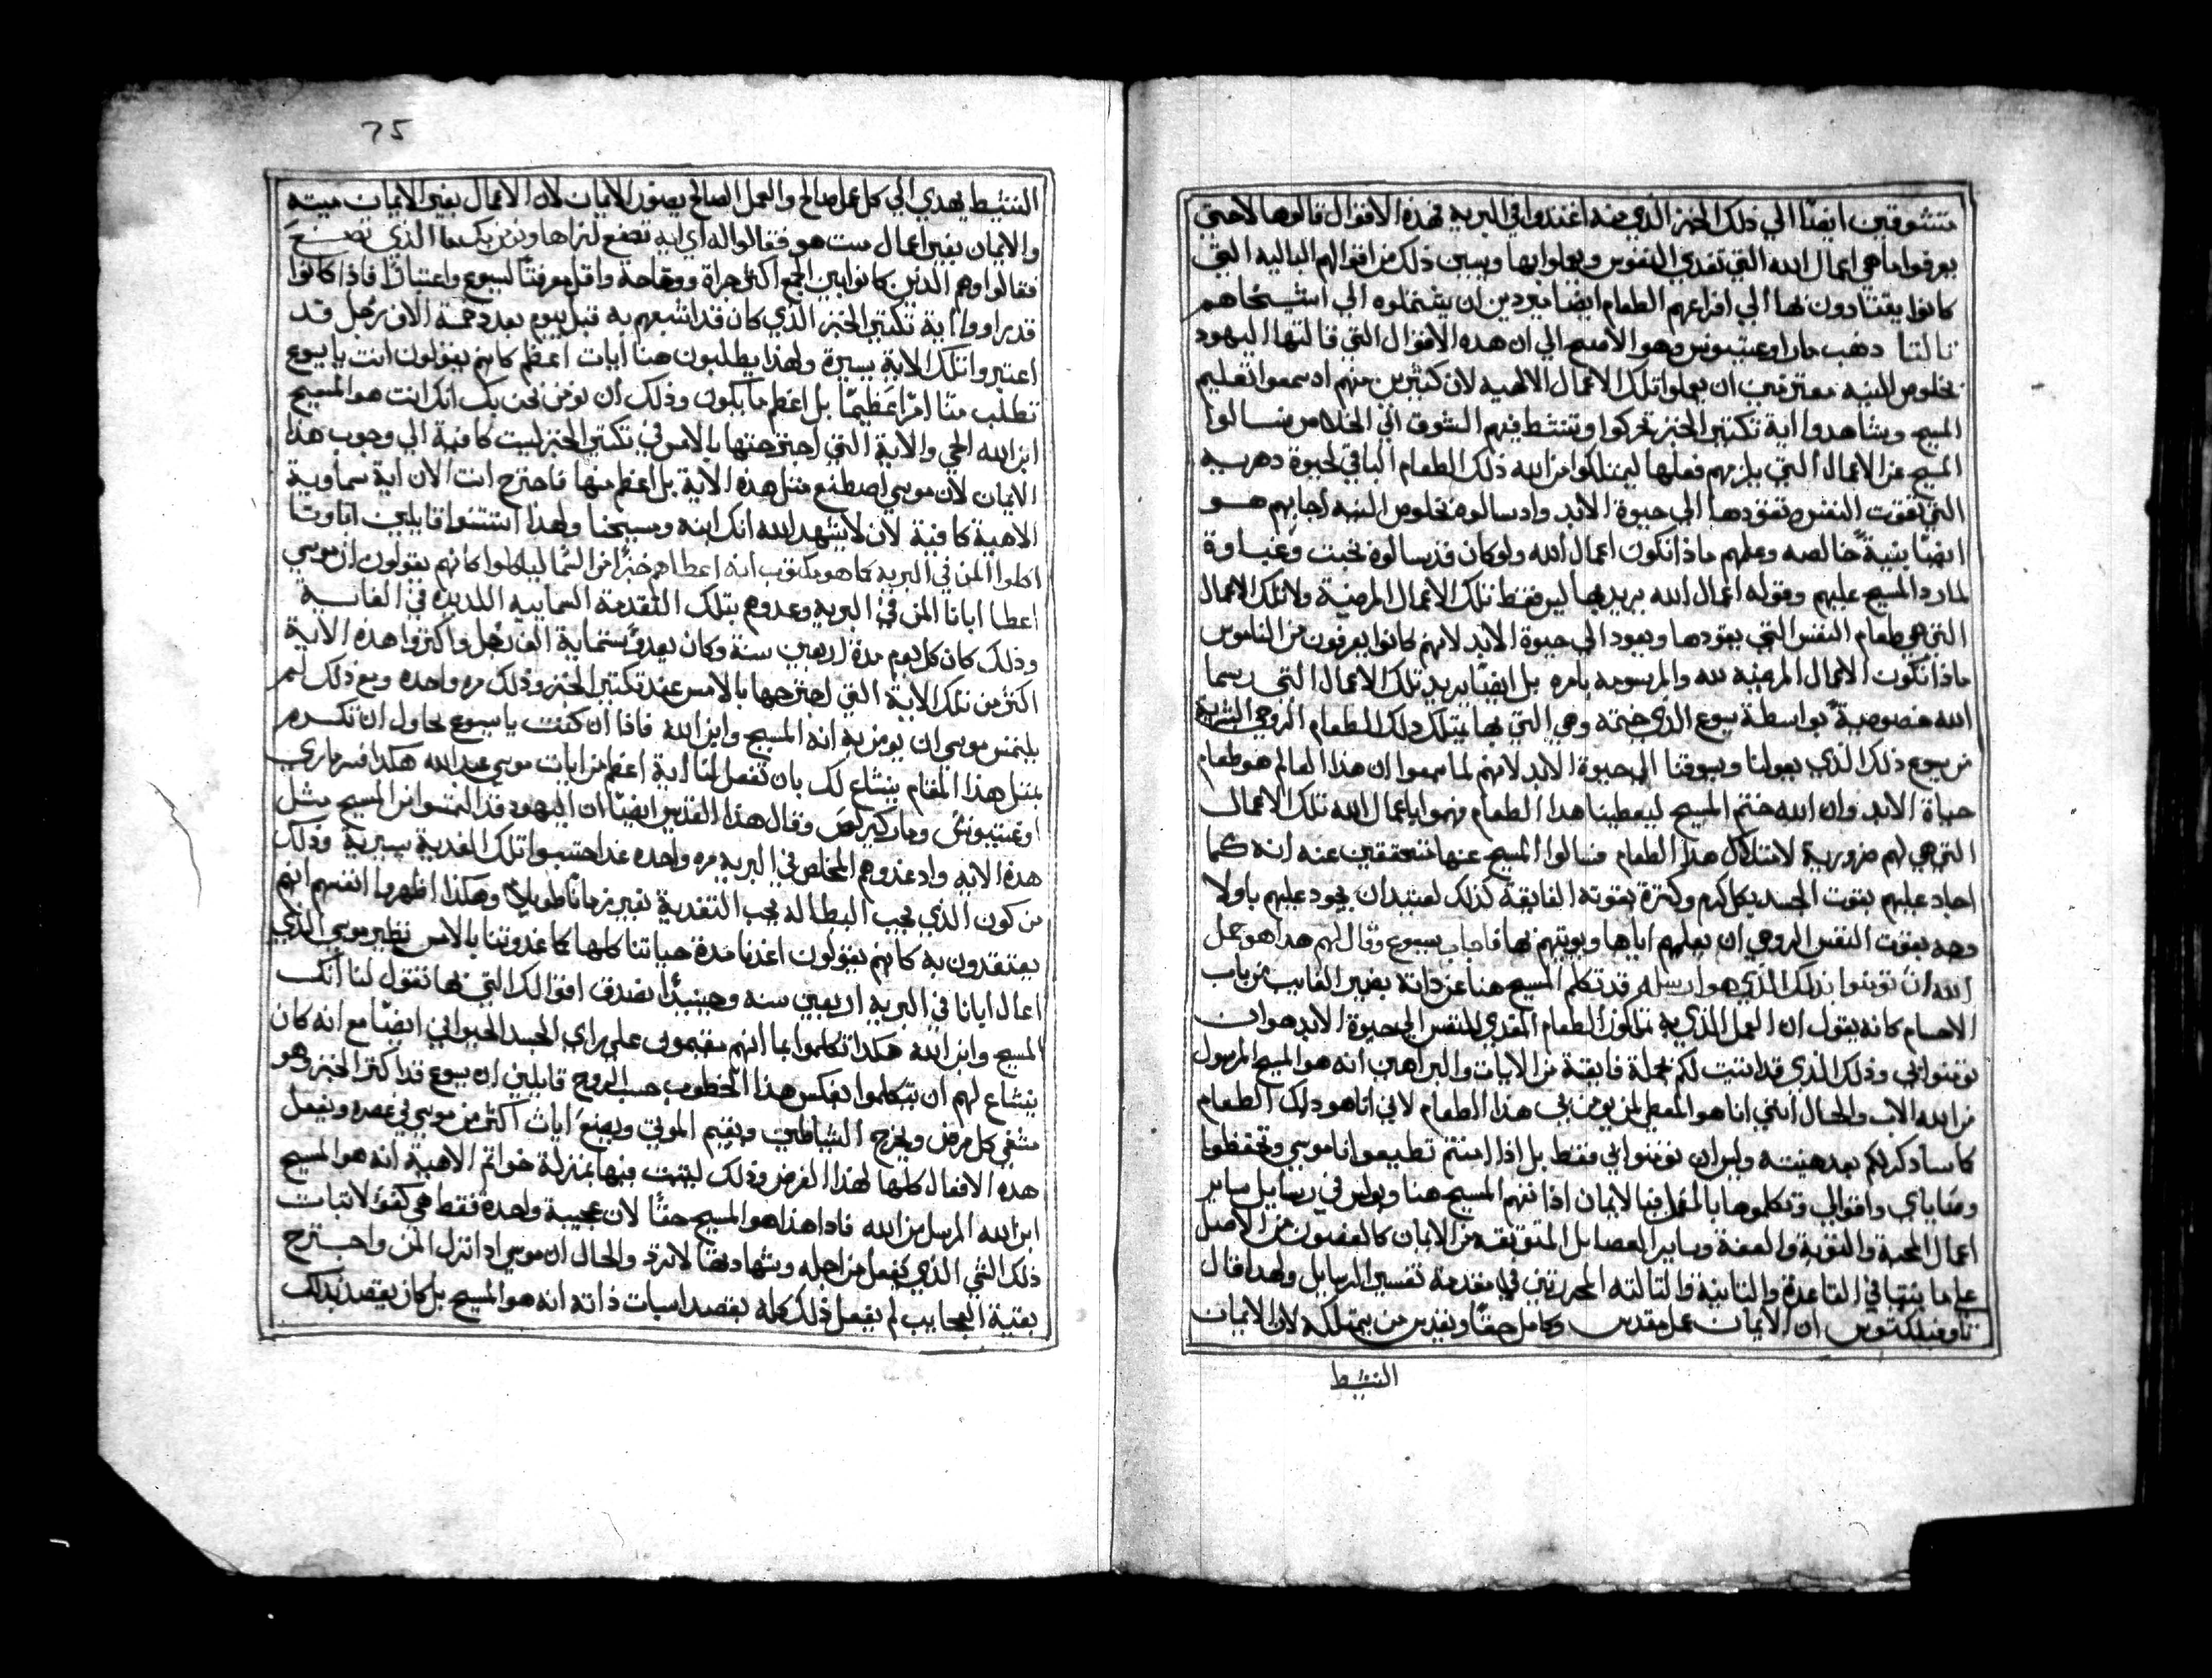 متشوقين ايضًا الي ذلك الخبز الذي منه اغتدوا في البريه فهذه الاقوال قالوها لاحتي
يعرفوا ما هي اعمال الله التي تغدي النفوس ويعلوا بها ويبين ذلك من اقوالهم الباليه التي
كانوا يقتادون بها الي افراغهم الطعام ايضًا مريدين ان يشتملوه الي اشتخاهم
ثالثا دهب مار اوغستينوس وهو الاصح الي ان هده الاقوال التي قالتها اليهود
بخلوص النيه معترفين ان يعملوا تلك الاعمال الالهيه لان كثيرين منهم اد سمعوا تعليم
المسيح وشاهدوا اية تكتير الخبز تحركوا وتنشط فيهم الشوق الي الخلاص فسالوا
المسيح عن الاعمال التي يلزمهم فعلها ليمتلكوا من الله ذلك الطعام الباقي لحيوة دهريه
التي تقوت النفس وتقودها الي حيوة الابد واد سالوه بخلوص النيه اجابهم هو
ايضًا بنية خالصه وعلمهم ماذا تكون اعمال الله ولو كان قد سالوه بخبت وغباوة
لما رد المسيح عليهم وقوله اعمال الله يريد بها ليس فقط تلك الاعمال المرضية ولا تلك الاعمال
التي هي طعام النفس التي يقودها ويعود الي حيوة الابد لانهم كانوا يعرفون من الناموس
ماذا تكون الاعمال المرضيه لله والمرسومه بامره بل ايضًا يريد تلك الاعمال التي رسمها
الله خصوصية بواسطة يسوع الذي ختمه وهي التي بها يمتلك دلك الطعام الروحي
من يسوع ذلك الذي يعولنا ويسوقنا الي حيوة الابد لانهم لما سمعوا ان هذا العالم هو طعام
حياة الابد وان الله ختم المسيح ليعطينا هدا الطعام فهموا باعمال الله تلك الاعمال
التي هي لهم ضرورية لامتلاك هدا الطعام فسالوا المسيح عنها متحققين عنه انه كما
اجاد عليهم بقوت الجسد بكل كرم وكترة بقوته الفايقة كذلك لعتيد ان يجود عليهم باولا
وجه بقوت النفس الروحي ان يعلمهم اياها ويويتهم بها فاجاب يسوع وقال لهم هدا هو عمل
الله ان تومنوا بذلك الذي هو ارسله قد تكلم المسيح هنا عن داته بضمير الغايب من باب
الاحسام كانه يقول ان العمل الذي به تملكوا الطعام المغدي للنفس الي حيوة الابد هو ان
تومنوا بي وذلك الذي قد اتبت لكم بجملة فايقة من الايات والبراهين انه هو المسيح المرسول
من الله الاب والحال انني انا هو المعطي لمن يومن بي هذا الطعام لاني انا هو دلك الطعام
كما سادكر لكم بعد هنيته وليس ان تومنوا بي فقط بل اذا امنتم تطيعوا ناموسي وتحفظوا
وصاياي واقوالي وتكملوها بالعمل فبالايمان اذا يفهم المسيح هنا وبولس في رسايل ساير
اعمال المحبة والتوبة والعفة وساير الفضايل المتوتقه من الايمان كالغصون من الاصل
علي ما بيننا في القاعدة والثانية والتالته المحررتين في مقدمة تفسير الرسايل ولهدا قال
تاوفيلكتوس ان الايمان عمل مقدس وكامل حقًا ويقدس من يمتلكه لان الايمان
النشيط
75
النشيط يهدي الي كل عمل صالح والعمل الصالح يصون الايمان لان الاعمال بغير الايمان ميته
والايمان بغير اعمال ميت هو فقالوا له اي ايه تصنع لنراها ونومن بك ما الذي تصنع
فقالوا وهم الذين كانوا بين الجمع اكثر جراة ووقاحة واقل معرفتًا ليسوع واعتبارًا فاذا كانوا
قد راووا اية تكتير الخبز الذي كان قد اشبعهم به قبل بيوم بعدد خمسة الاف رجل قد
اعتبروا تلك الاية يسيرة ولهذا يطلبون هنا ايات اعظم كانهم يقولون انت يا يسوع
تطلب منا امرًا عظيمًا بل اعظم ما يكون وذلك ان نومن نحن بك انك انت هو المسيح
ابن الله الحي والاية التي اجترحتها بالامس في تكتير الخبز ليست كافية الي وجوب هذا
الايمان لان موسي اصطنع متل هذه الاية بل اعظم منها فاجترح انت الان اية سماوية
الاهية كافية لان لا يشهد الله انك ابنه ومسيحنا ولهذا استتنوا قايلين اباونا
اكلوا المن في البريه كما هو مكتوب انه اعطاهم خبزًا من السما لياكلوا كانهم يقولون ان موسي
اعطا ابانا المن في البريه وعدوهم بتلك التقدمة السماييه اللديده في الغاية
وذلك كان كل يوم مدة اربعين سنة وكان بعدد ستماية الف رجل واكتروا هذه الاية
اكتر من تلك الاية التي اجترحها بالامس عند تكتير الخبز وذلك مره واحده ومع ذلك لم
يلتمس موسي ان يومن به انه المسيح وابن الله فاذا ان كنت يا يسوع تحاول ان تكرم
بمتل هذا المقام ينشاع لك بان تفعل لنا اية اعظم من ايات موسي عبد الله هكدا فسر ماري
اوغستينوس ومار كيرلص وقال هذا القديس ايضًا ان اليهود قد التمسوا من المسيح متل
هدة الايه واد غدوهم المخلص في البريه مره واحده غدا حتسبوا تلك الغدية يسيرية وذلك
من كون الذي يحب البطاله يحب التغدية بغير زمانًا طويلاً وهكذا اظهروا انفسهم انهم
يعتقدون به كانهم يقولون اغدنا مدة حياتنا كلها كما غدوتنا بالامس نظير موسي الذي
اعال ابانا في البريه اربعين سنه وحينيذًا نصدق اقوالك التي بها تقول لنا انك
المسيح وابن الله هكدا تكلموا بما انهم مقيمون علي راي الجسد الحيواني ايضًا مع انه كان
ينشاع لهم ان يتكلموا بعكس هذا الخطوب حسب الروح قايلين ان يسوع قد اكتر الخبز وهو
مشفي كل مرض ويخرج الشياطين ويقيم الموتي ويصنع ايات اكتر من موسي في عصره ويفعل
هده الافعال كلها لهذا الغرض وذلك ليتبت فيها بمنزلة خواتم الاهية انه هو المسيح
ابن الله المرسل من الله فادا هذا هو المسيح حقًا لان عجيبة واحدة فقط هي كفوًا لاتبات
ذلك الشي الذي يفعل من اجله وشهادتها لا ترد والحال ان موسي اد انزل المن واجترح
بقية العجايب لم يفعل ذلك كله بقصد اتبات ذاته انه هو المسيح بل كان يقصد بذلك